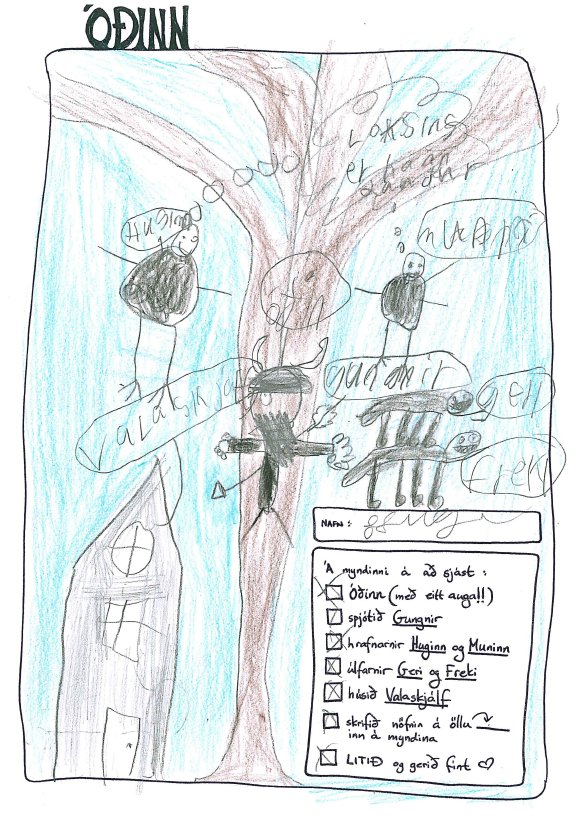 ÓÐINN
LOKSINS
er haan
dauður
Huginn
óðin
Valaskjalf
gungnir
geri
freki
NAFN:
Á myndinni á að sjást:
Óðinn (með eitt auga!!)
spjótið Gungnir
hrafnarnir Huginn og Muninn
úlfarnir Geri og Freki
húsið Valaskjálf
skrifið nöfnin á öllu
inn á myndina
LITIÐ og gerið fínt ♡